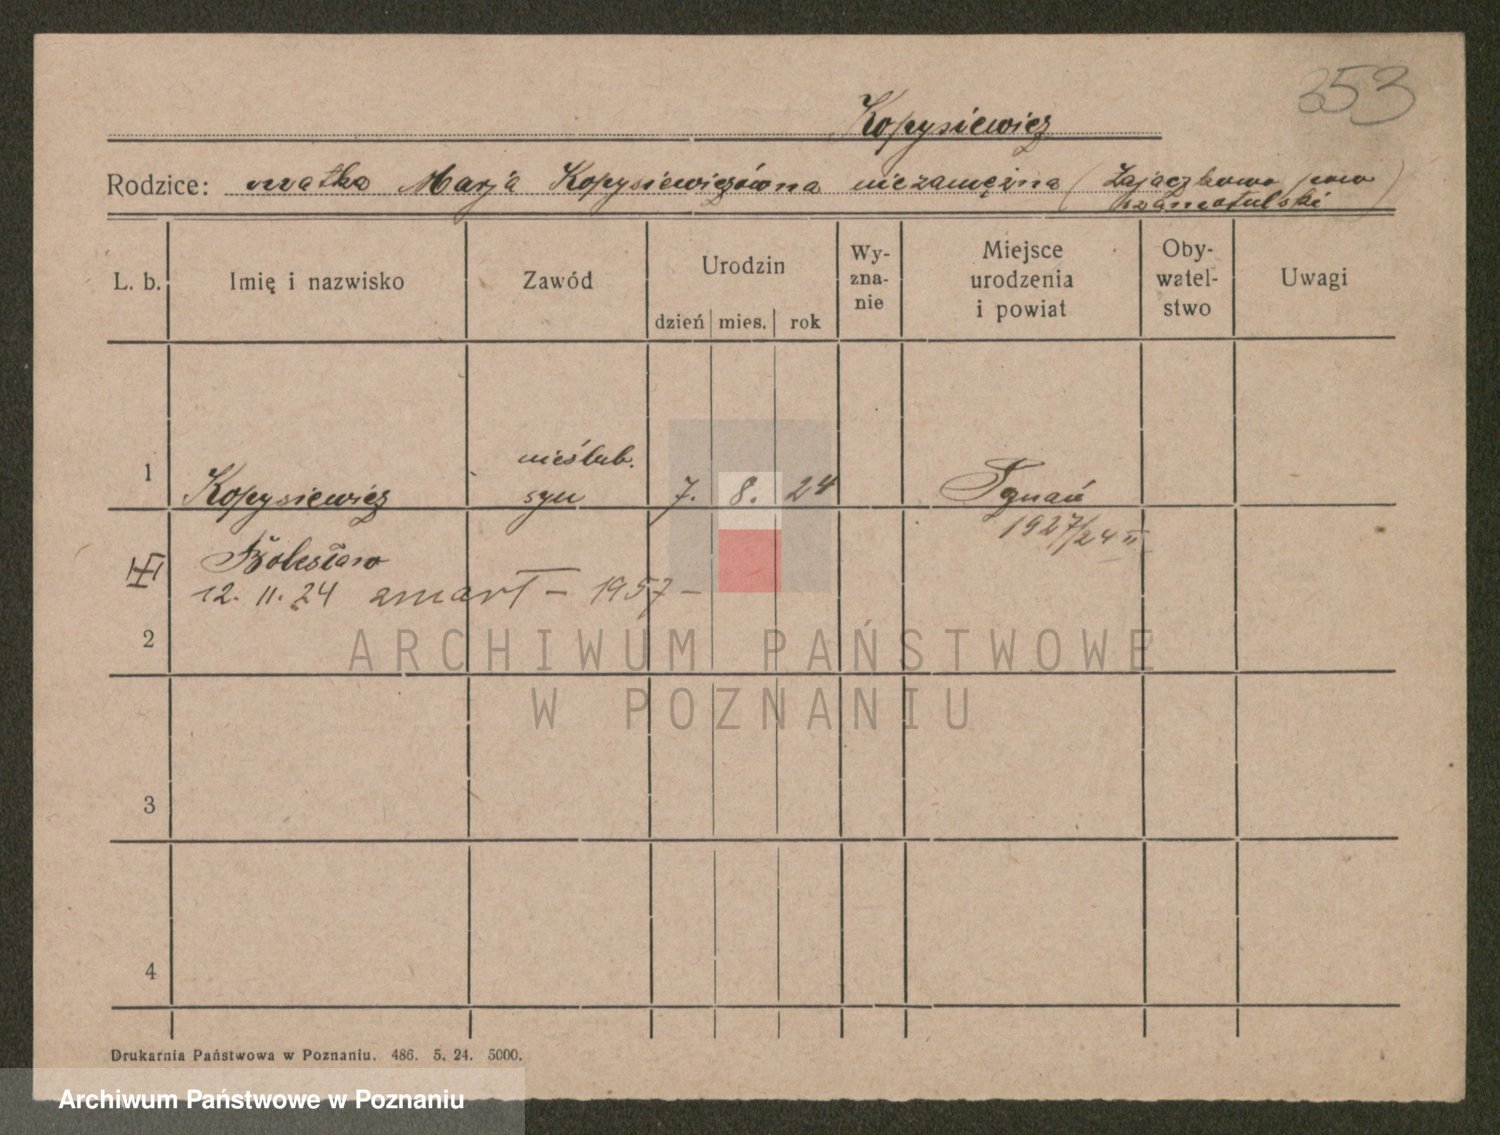 353
Kopysiewicz
Rodzice: matka Marja Kopysiewiczówna niezamężna (Zajączkowo pow
szamotulski)
L. b. Imię i nazwisko Zawód Urodzin dzień mies. rok Wy-zna-nie Miejsce urodzenia i powiat Oby-watel-stwo Uwagi
nieślub.
1 Kopysiewicz syn 7. 8. 24 Poznań
1927/24 II
Bolesław
12. 11. 24 zmarł – 1957 –
2
ARCHIWUM PAŃSTWOWE
W POZNANIU
3
4
Drukarnia Państwowa w Poznaniu. 486. 5. 24. 5000.
Archiwum Państwowe w Poznaniu